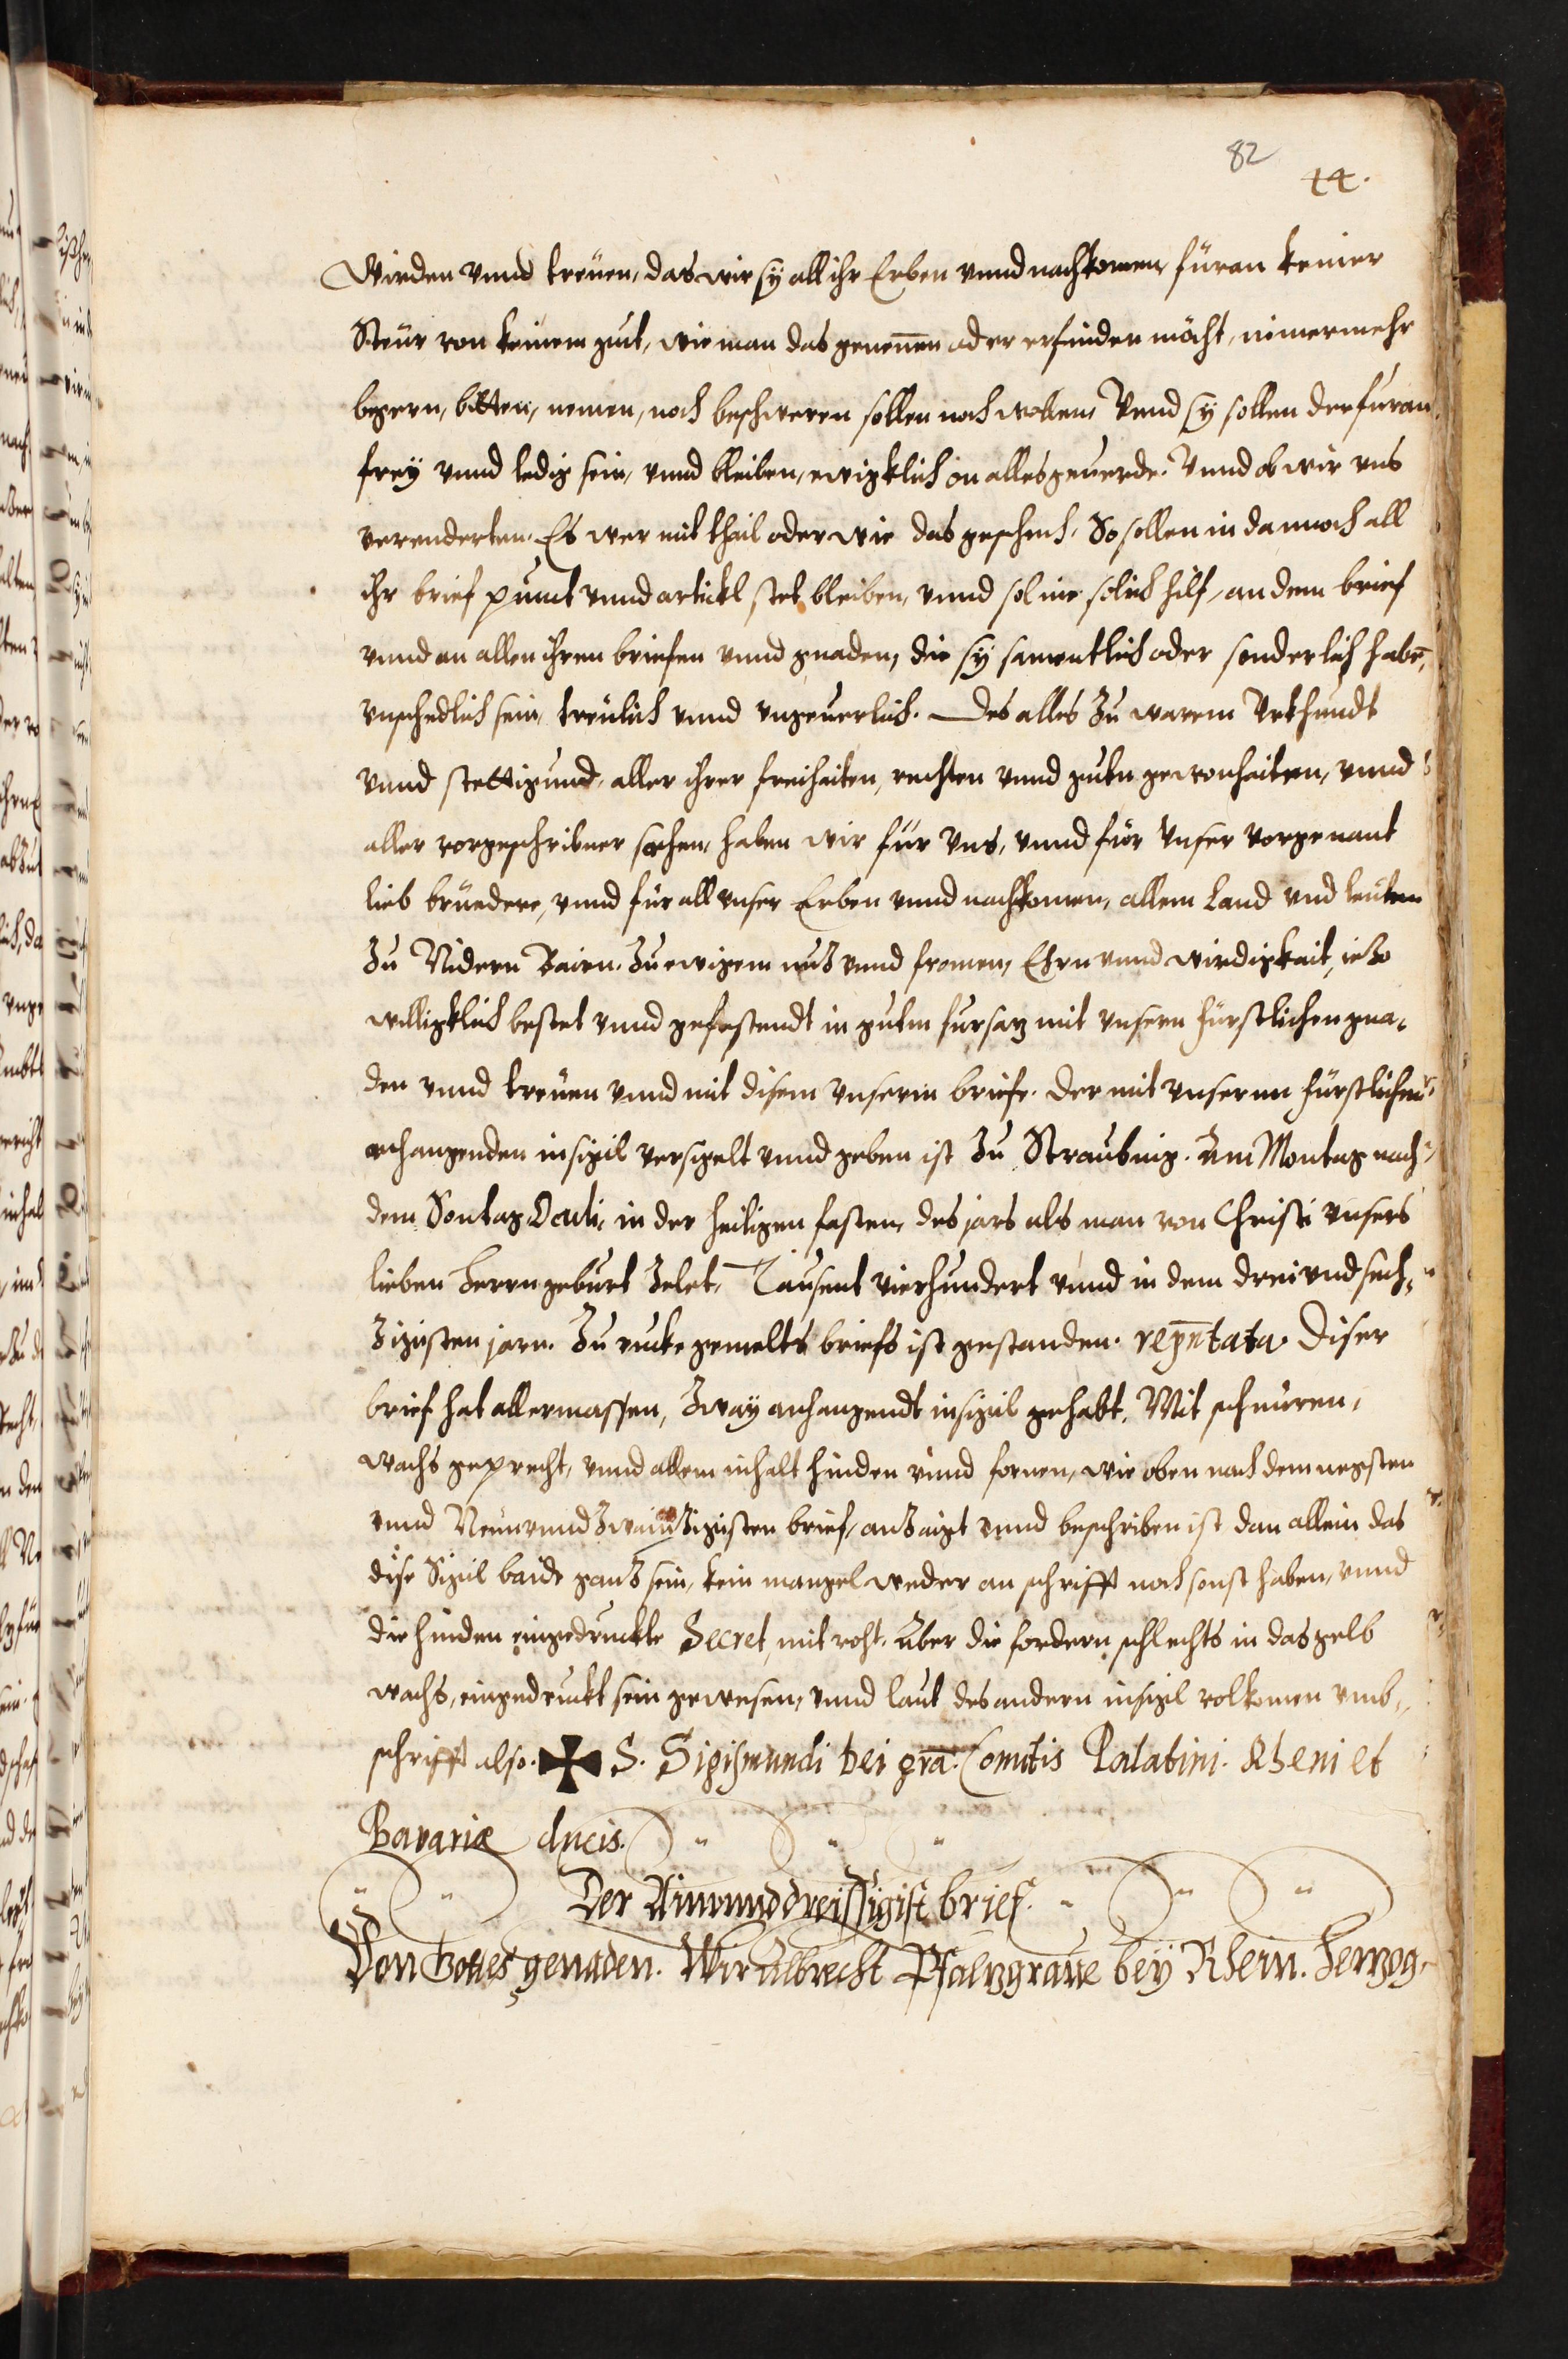 82
44.
Wirden vnnd treuen, das wir sÿ all ihr Erben vnnd nachkomen füran keiner
Steur von keinem gut, wie man das genennen oder erfinden möcht, nimermehr
begern, bitten, nemen, noch beschweren sollen noch wollen, Vnnd sÿ sollen der füran
freÿ vnnd ledig sein, vnnd bleiben, ewigklich on alles geuerde. Vnnd ob wir vns
verenderten. Es wer mit thail oder wie das geschech. So sollen in dannoch all
ihr brief punct vnnd artickl stet bleiben, vnnd sol nie solich hilf, an dem brief
vnnd an allen ihren briefen vnnd gnaden, die sÿ samentlich oder sonderlich habē,
vnschedlich sein, treulich vnnd vngeuerlich. Des alles Zu warem Vrkhundt
vnnd stettigund, aller ihrer freihaiten, rechten vnnd guten gewonhaiten, vnnd
aller vorgeschribner sachen, haben wir für Vns, vnnd für Vnser vorgenant
lieb brüedere, vnnd für all vnser Erben vnnd nachkomen, allem Land vnd leuten
Zu Nidern Bairn. Zu ewigem nuz vnnd fromen, Ehrn vnnd wirdigkait, iezo
willigklich bestet vnnd gefestendt in gutm fursaz mit vnsern fürstlichen gna-
den vnnd treuen vnnd mit disem vnserm briefe. Der mit vnserm fürstlichem
anhangenden insigil versigelt vnnd geben ist Zu Straubing. Am Montag nach
dem Sontag Oculi, in der heiligen fasten, des jars als man von Christi vnsers
lieben Herrn geburt Zelet, Tausent vierhundert vnnd in dem dreivndsech-
Zigisten jarn. Zu rucke gemelts briefs ist gestanden. rep̄ntata. Diser
brief hat allermassen, Zwaÿ anhangendt insigil gehabt. Mit schnüren,
wachs geprecht, vnnd allem inhalt hinden vnnd fornen, wie oben nach dem negsten
vnnd Neunvnndzwainzigisten brief, anzaigt vnnd beschriben ist dan allein das
dise Sigil baide ganz sein, kein mangel weder an schrifft noch sonst haben, vnnd
die hinden eingedruckte Secret, mit roht. Aber die fordern schlechts in das gelb
wachs, eingedruckt sein gewesen, vnnd laut des andern insigil volkomen vmb-
schrifft also. ✠ S. Sigismundi dei gra. Comitis Palatini. Rheni et
Bavariæ ducis.
Der Ainvnnddreissigist brief.
Von Gottes genaden. Wir Albrecht Pfalzgraue beÿ Rhein. Herzog